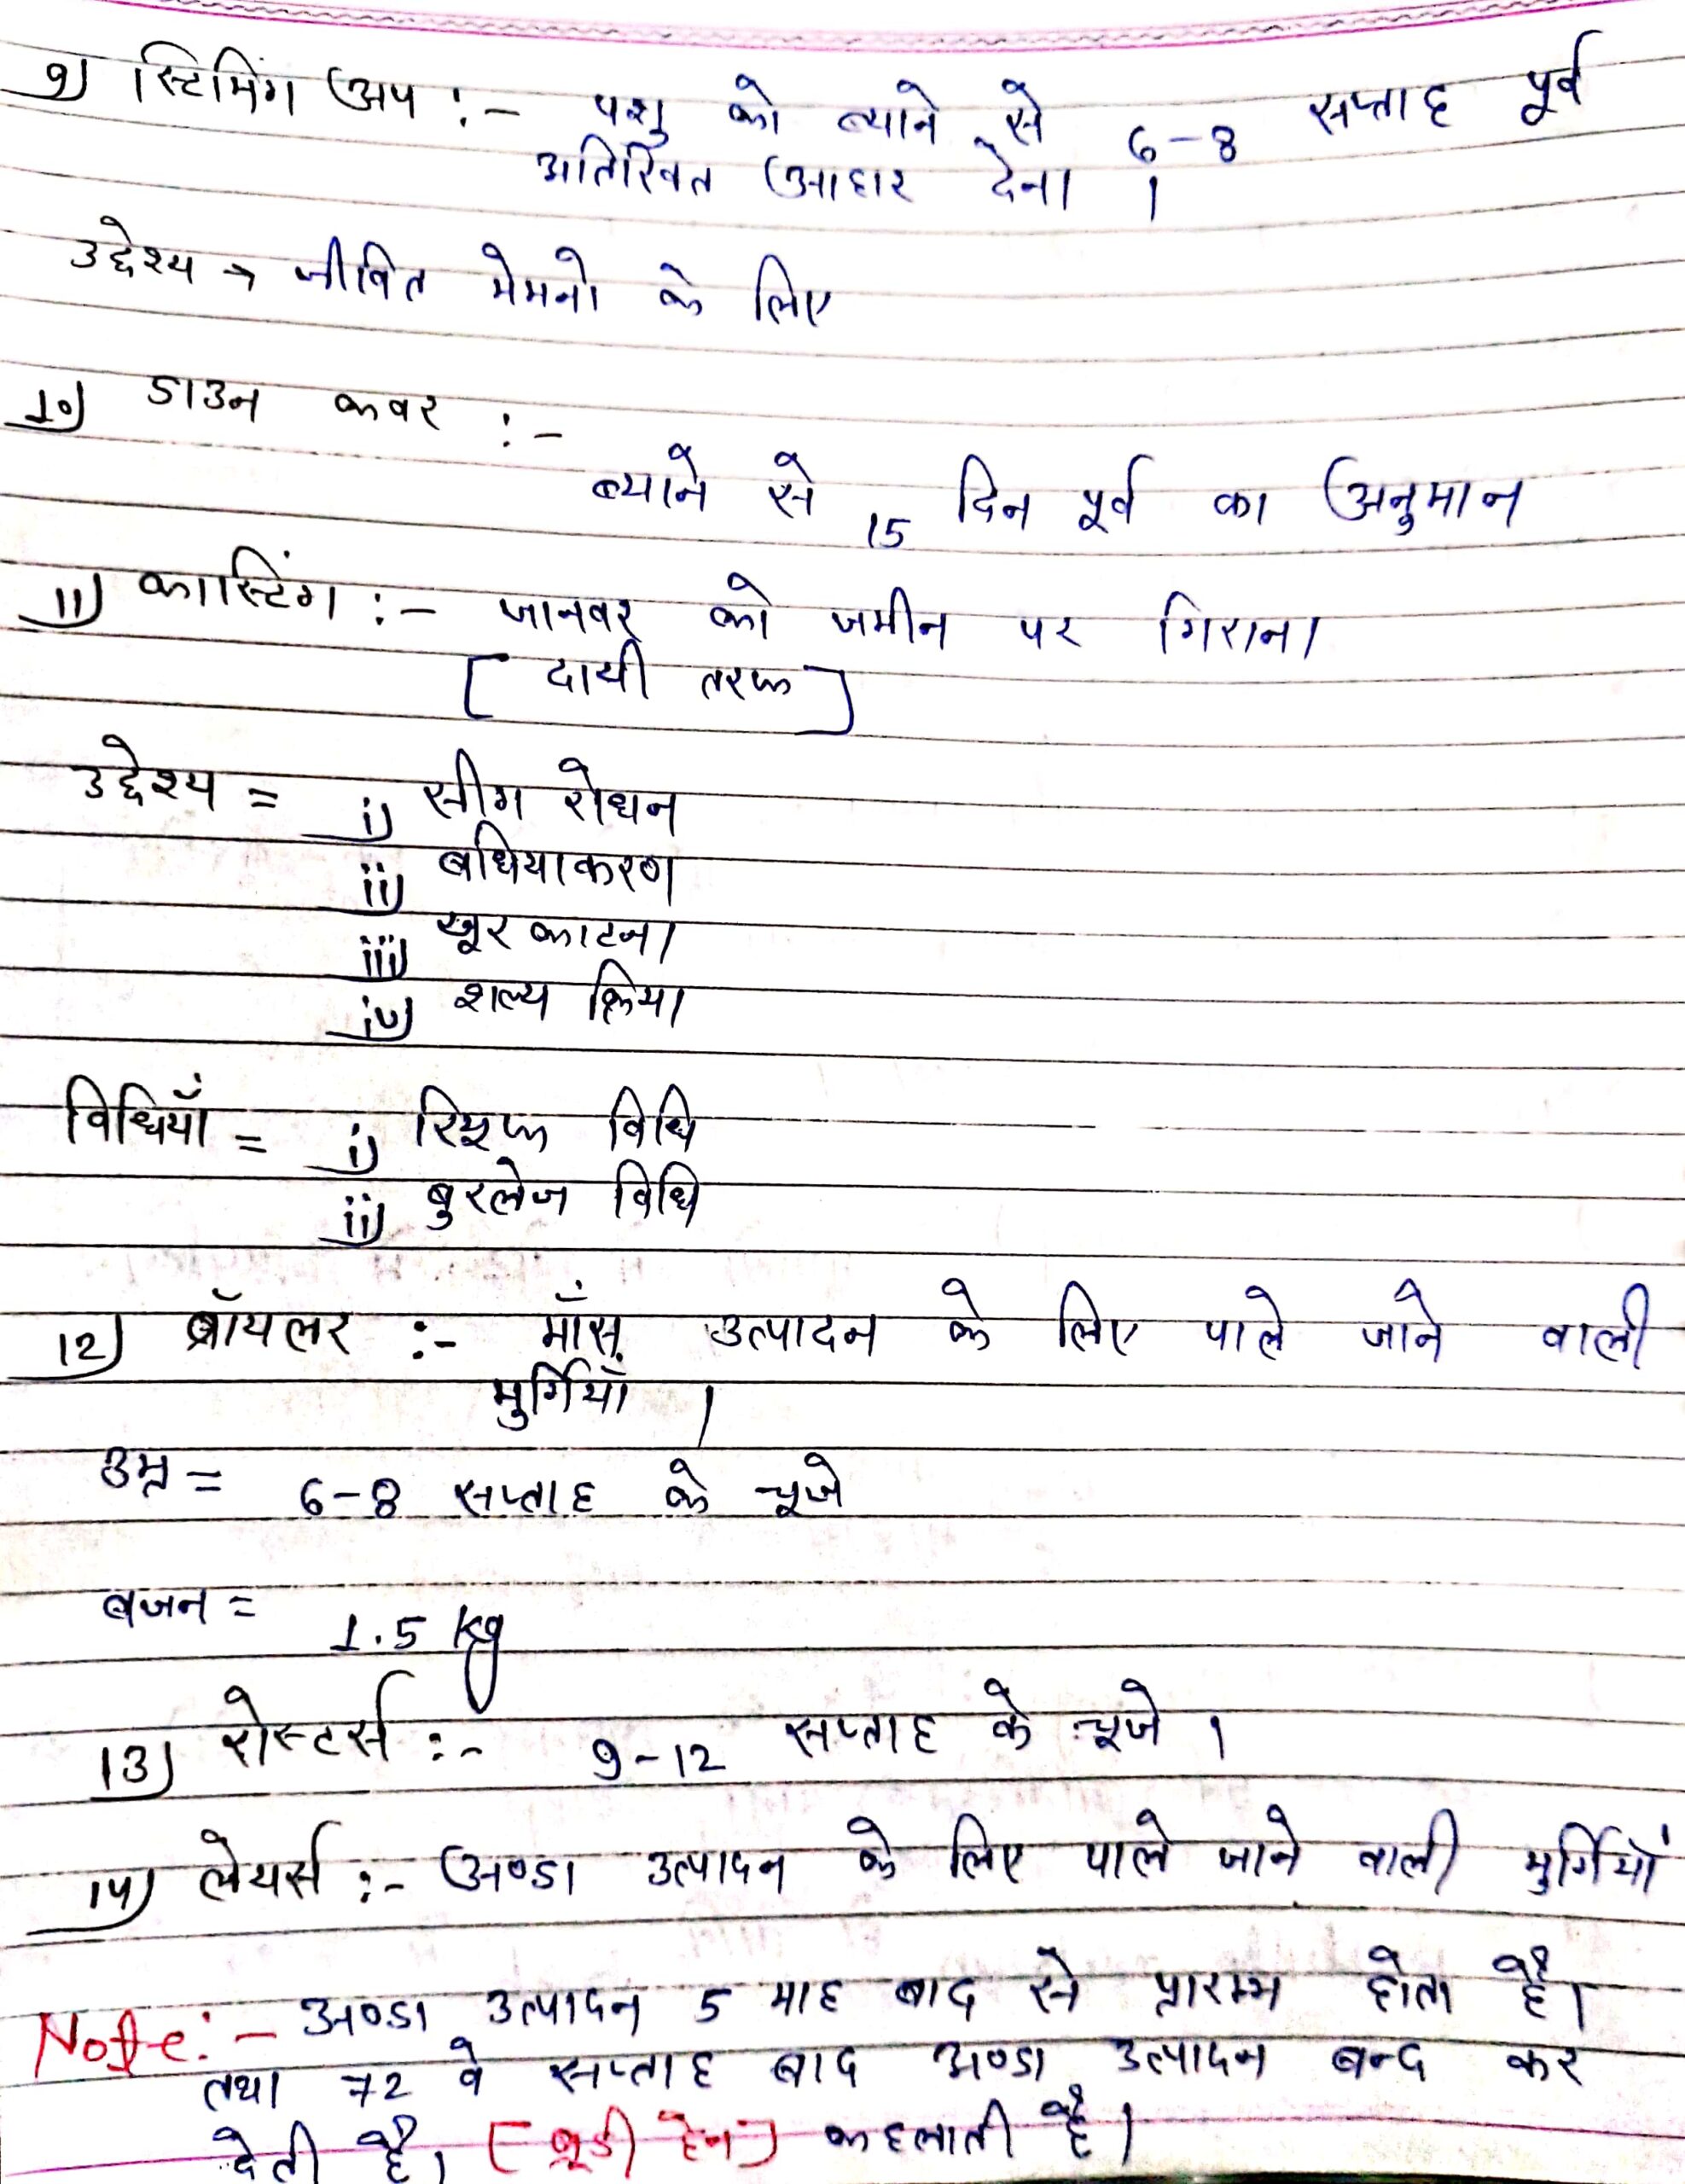 9) स्टिमिंग अप :- पशु को ब्याने से 6-8 सप्ताह पूर्व
अतिरिक्त आहार देना ।
उद्देश्य → जीवित मेमनो के लिए
10) डाउन कवर :-
ब्याने से 15 दिन पूर्व का अनुमान
11) कास्टिंग :- जानवर को जमीन पर गिराना
[ दायी तरफ ]
उद्देश्य = i) सींग रोधन
ii) बधियाकरण
iii) खूर काटना
iv) शल्य क्रिया
विधियाँ = i) रिफ विधि
ii) बुरलेज विधि
12) ब्रॉयलर :- माँस उत्पादन के लिए पाले जाने वाली
मुर्गियाँ ।
उम्र = 6-8 सप्ताह के चूजे
बजन = 1.5 kg
13) रोस्टर्स :- 9-12 सप्ताह के चूजे ।
14) लेयर्स :- अण्डा उत्पादन के लिए पाले जाने वाली मुर्गियाँ
Note:- अण्डा उत्पादन 5 माह बाद से प्रारम्भ होता है।
तथा 72 वे सप्ताह बाद अण्डा उत्पादन बन्द कर
देती है। [ब्रूडी हेन] कहलाती है।